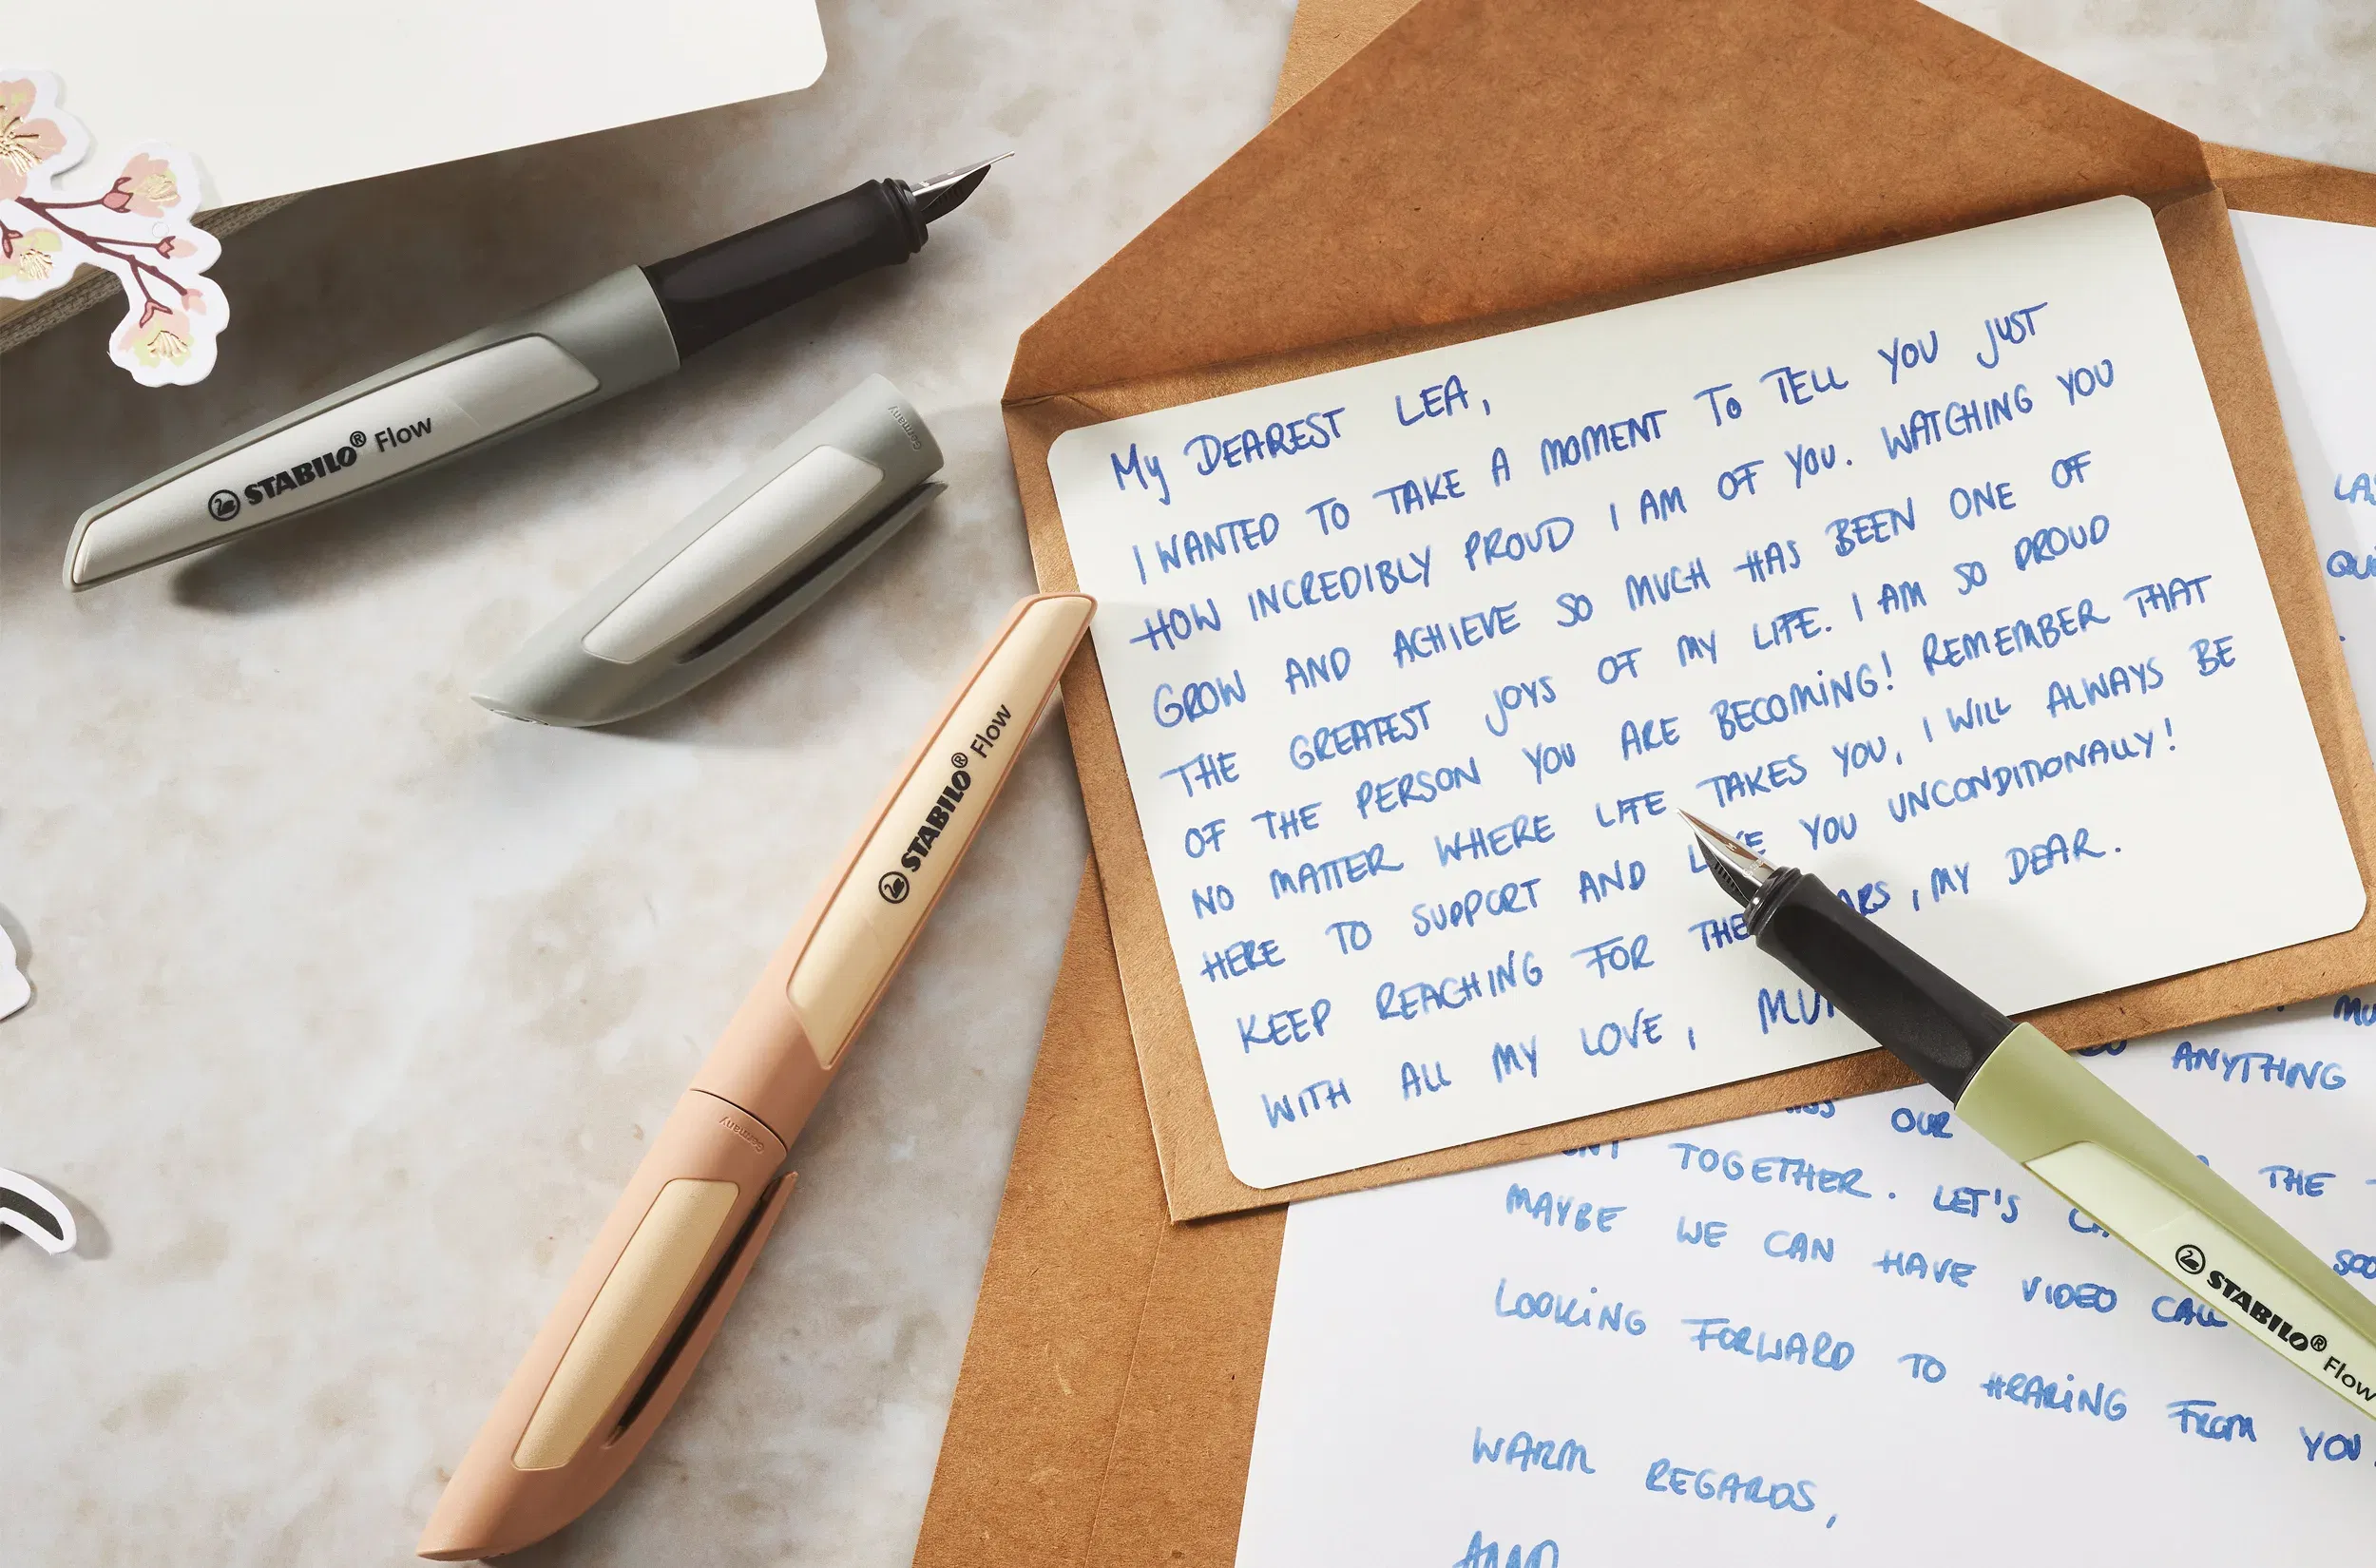 STABILO® Flow
Germany
STABILO® Flow
Germany
My DEAREST LEA,
I WANTED TO TAKE A MOMENT TO TELL YOU JUST
HOW INCREDIBLY PROUD I AM OF YOU. WATCHING YOU
GROW AND ACHIEVE SO MUCH HAS BEEN ONE OF
THE GREATEST JOYS OF MY LIFE. I AM SO PROUD
OF THE PERSON YOU ARE BECOMING! REMEMBER THAT
NO MATTER WHERE LIFE TAKES YOU, I WILL ALWAYS BE
HERE TO SUPPORT AND YOU UNCONDITIONALLY!
KEEP REACHING FOR , MY DEAR.
WITH ALL MY LOVE,
ANYTHING
OUR
TOGETHER. LET'S THE
MAYBE WE CAN HAVE VIDEO CALL
LOOKING FORWARD TO HEARING FROM YOU
WARM REGARDS,
STABILO® Flow